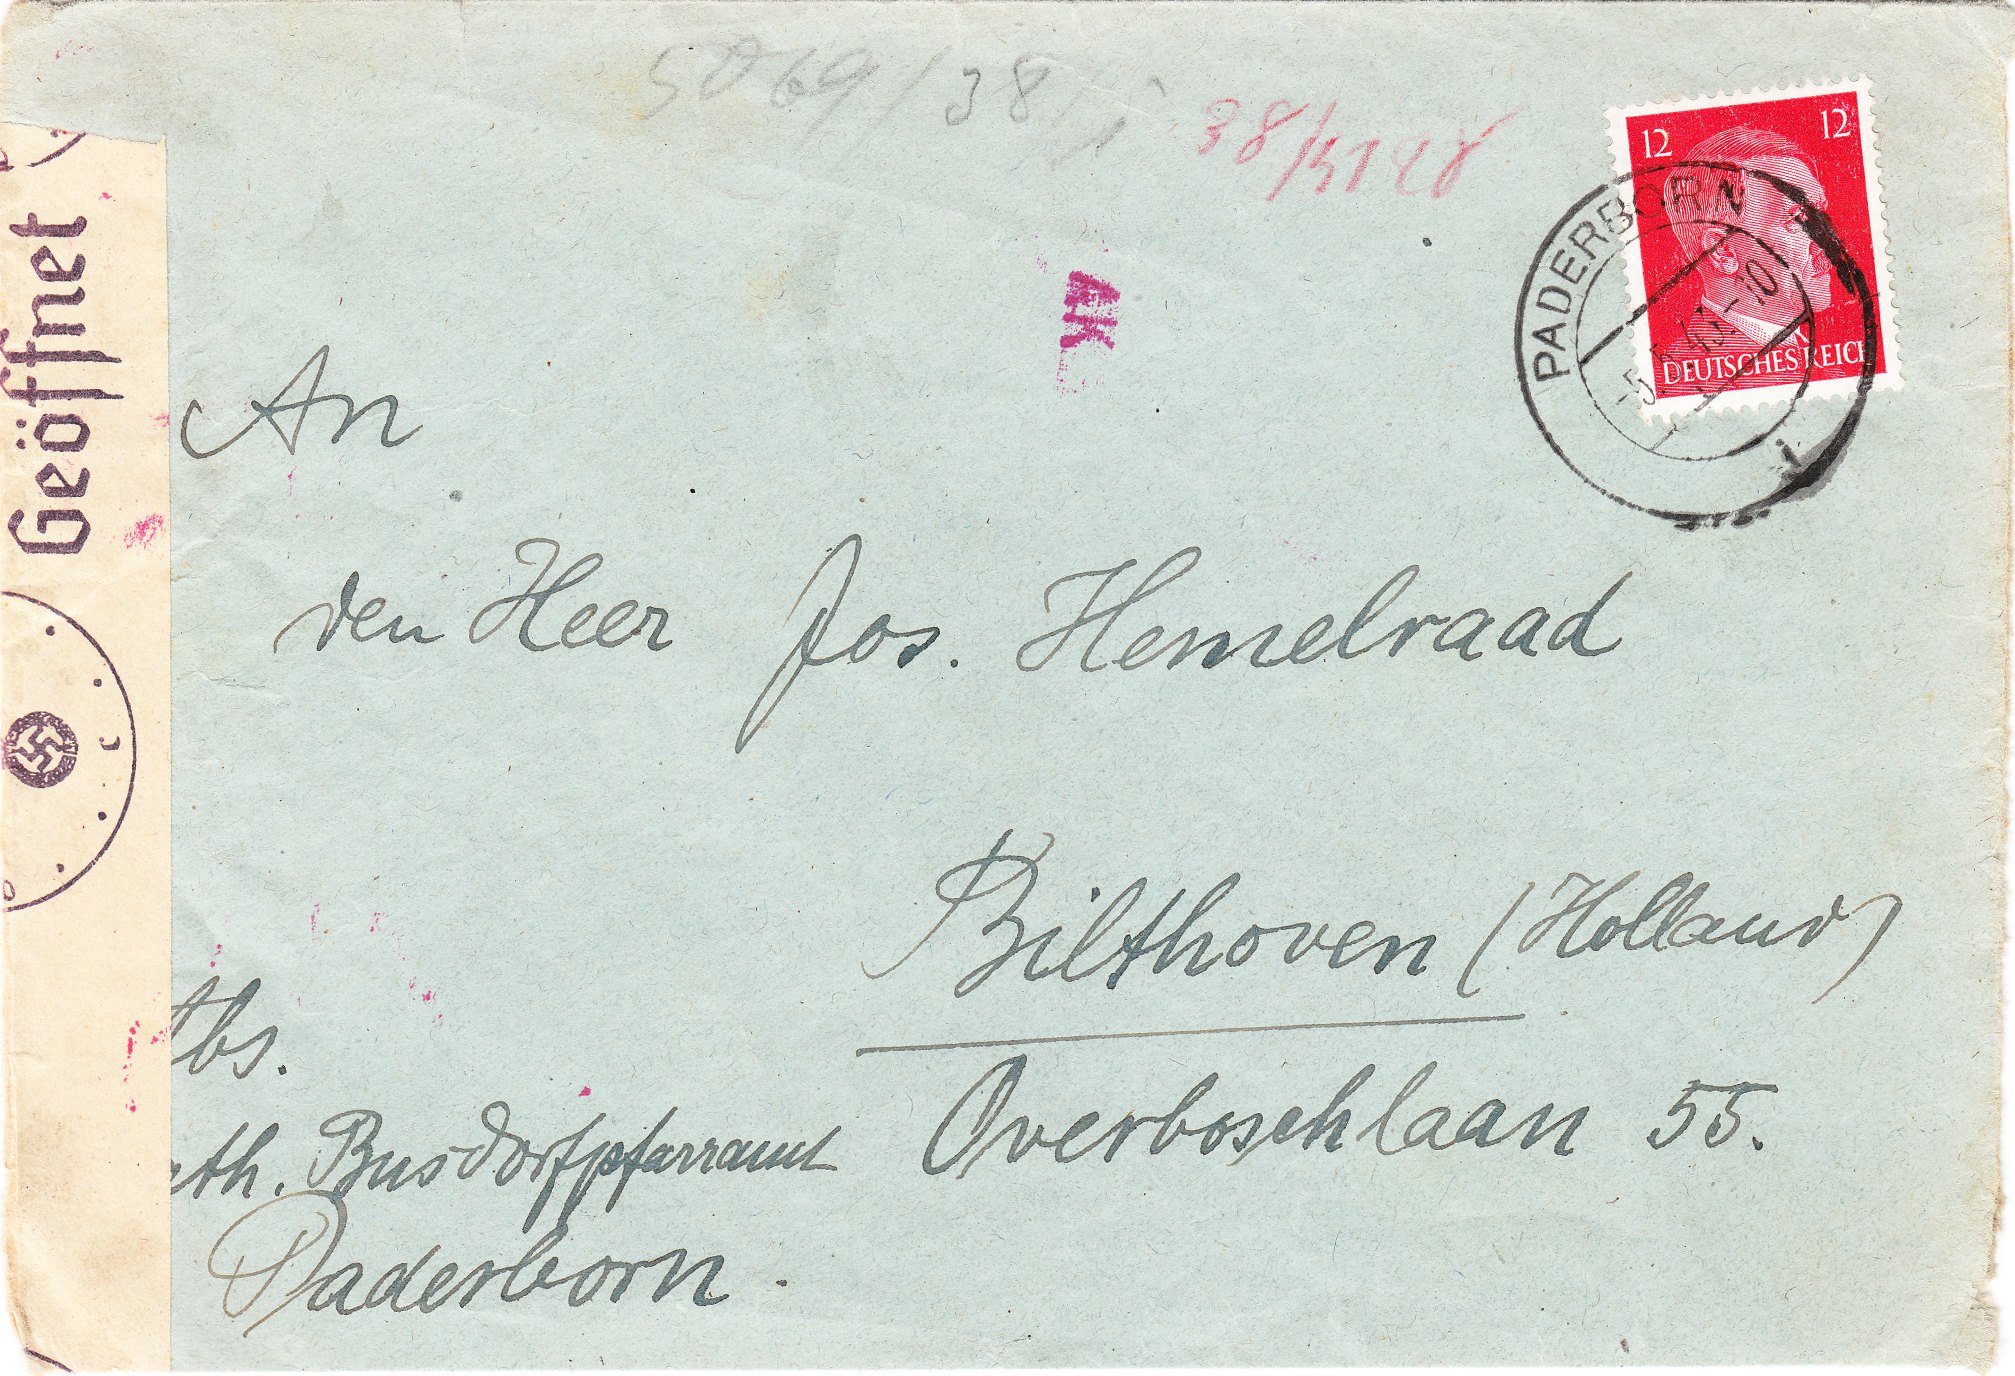 5069/38
38/5128
12 12
DEUTSCHES REICH
PADERBORN
-5.5.43.-10
Geöffnet
AK
An
den Heer Jos. Hemelraad
Bilthoven (Holland)
Overboschlaan 55.
Abs.
kath. Busdorfpfarramt
Paderborn.
c
b